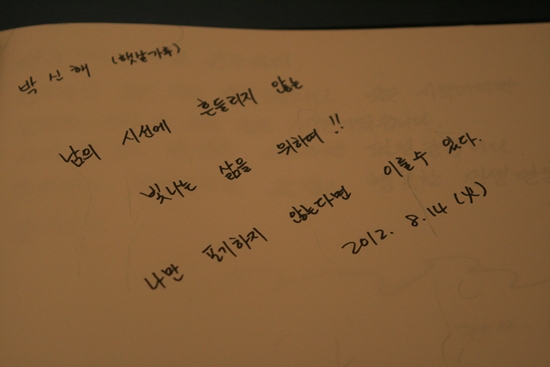 박신해 (햇살가루)
남의 시선에 흔들리지 않는
빛나는 삶을 위하여!!
나만 포기하지 않는다면 이룰수 있다.
2012. 8.14 (火)